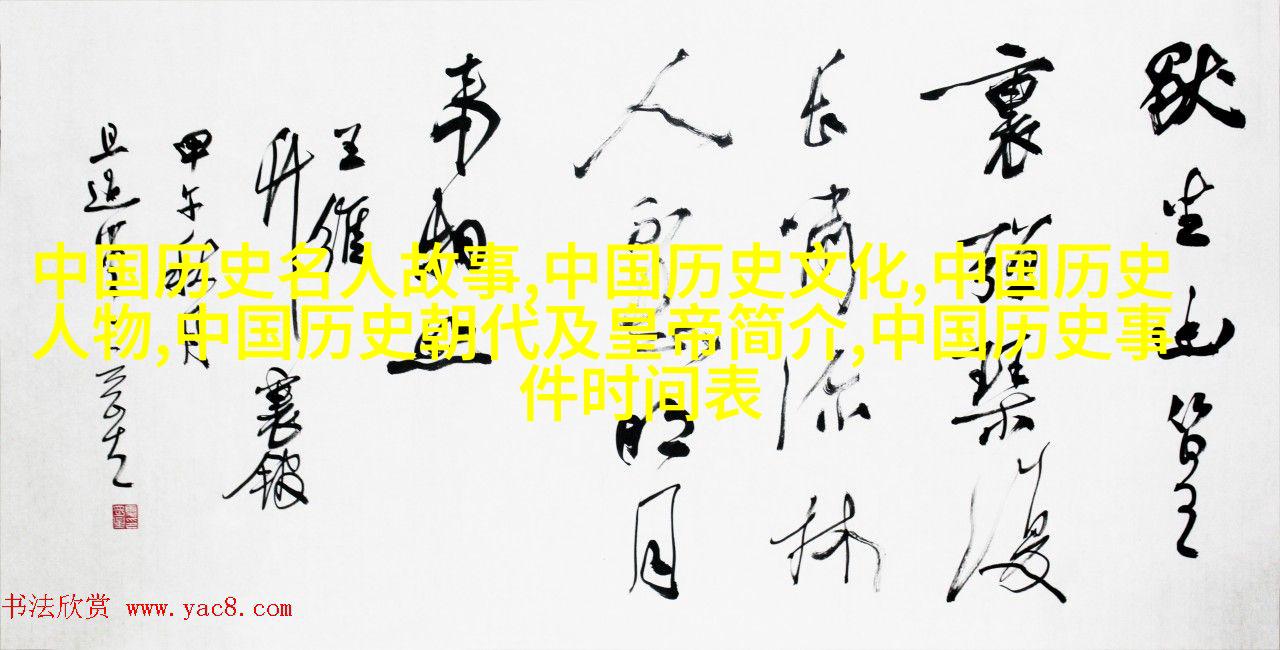 中国历史名人故事,中国历史文化,中国历史
人物,中国历史朝代及皇帝简介,中国历史事
件时间表
獨坐幽篁
裏彈琴復
长啸深林
人不知明月
来相照
王維
竹裏館
甲午秋月
书法欣赏 www.yac8.com